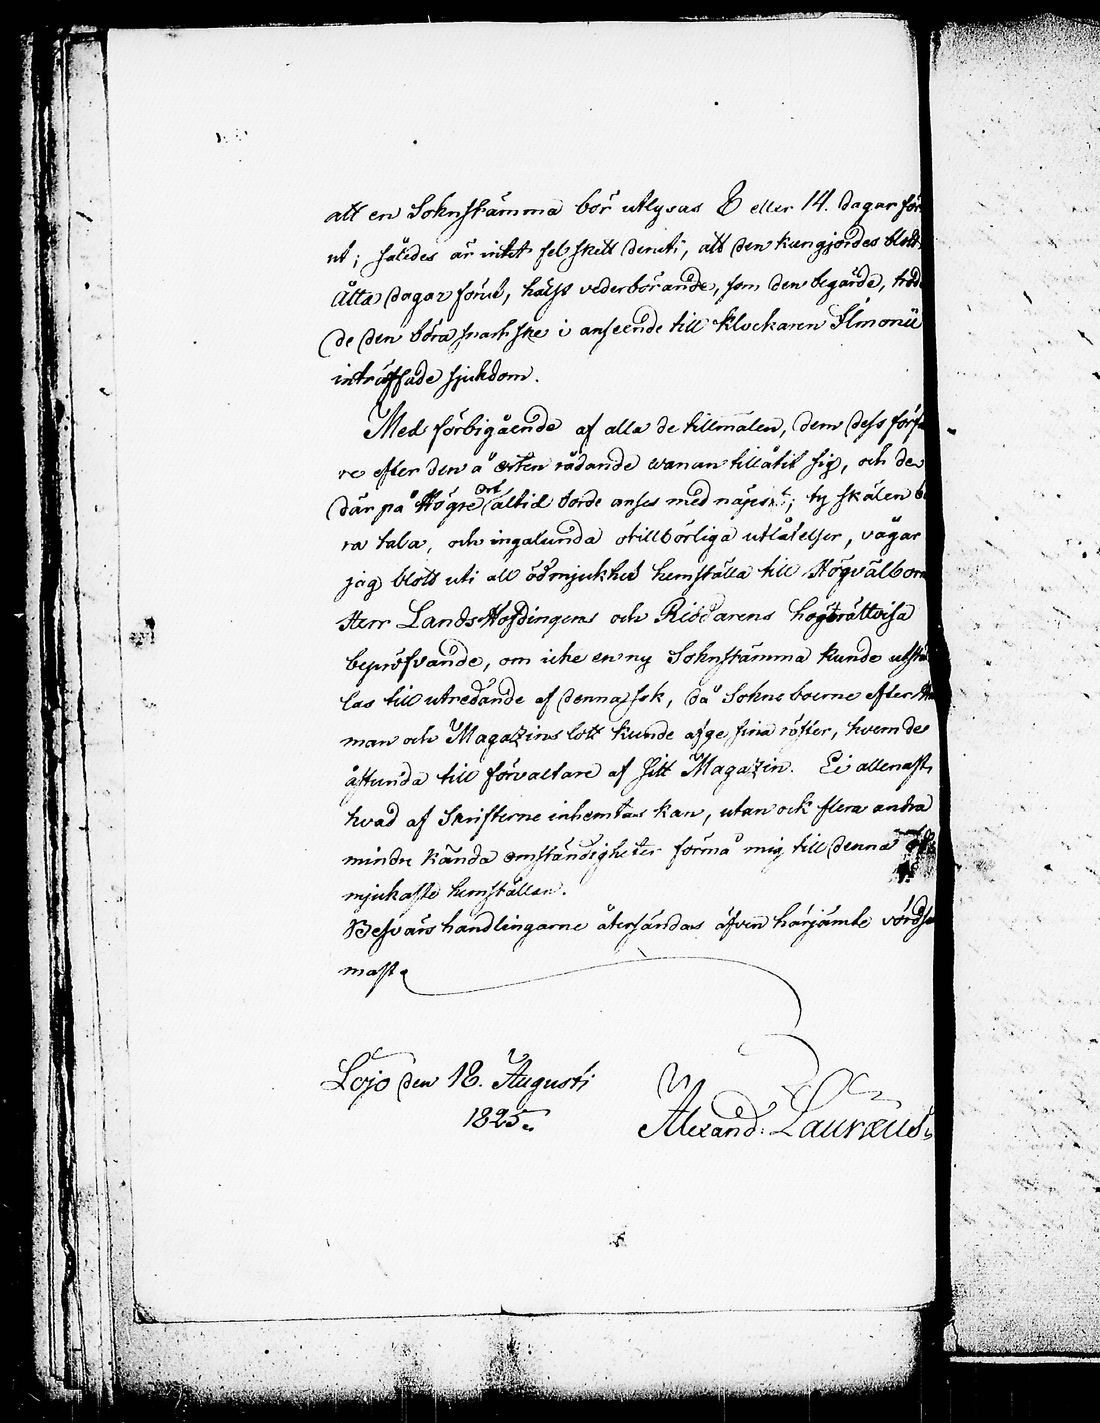 att en Soknstämma bör utlysas 8 eller 14. dagar för
ut; således är intet fel skett deruti, att den kungjordes blott
Åtta dagar förut, hälst vederbörande, som den begärde, trod
de den böra snart ske i anseende till klockaren Ilmonii
inträffade sjukdom.
Med förbigående af alla de tillmälen, dem dess förfa
re efter den å orten rådande wanan tillåtit sig, och de
där på Högre Ort altid borde anses med ; ty skälen bö
ra tala, och ingalunda otillbörliga utlåtelser, vågar
jag blott uti all ödmjukhet hemställa till Högvälborne
Herr LandsHöfdingens och Riddarens högträttvisa
bepröfvande, om icke en ny Soknstämma kunde utstä
las till utredande af denna sak, då Sokneboerne efter
man och Magazins lott kunde afge sina röster, hvem de
åstunda till förvaltare af Sitt Magazin. Ei allenast,
hvad af Skrifterne inhemtas kan, utan ock flera andra
mindre kända omständigheter förmå mig till denna
mjukaste hemställan.
Besvärs handlingarne återsändas äfven härjämte vördsa
mast.
Lojo den 18. Augusti
1825.
Alexand: Lauræus.